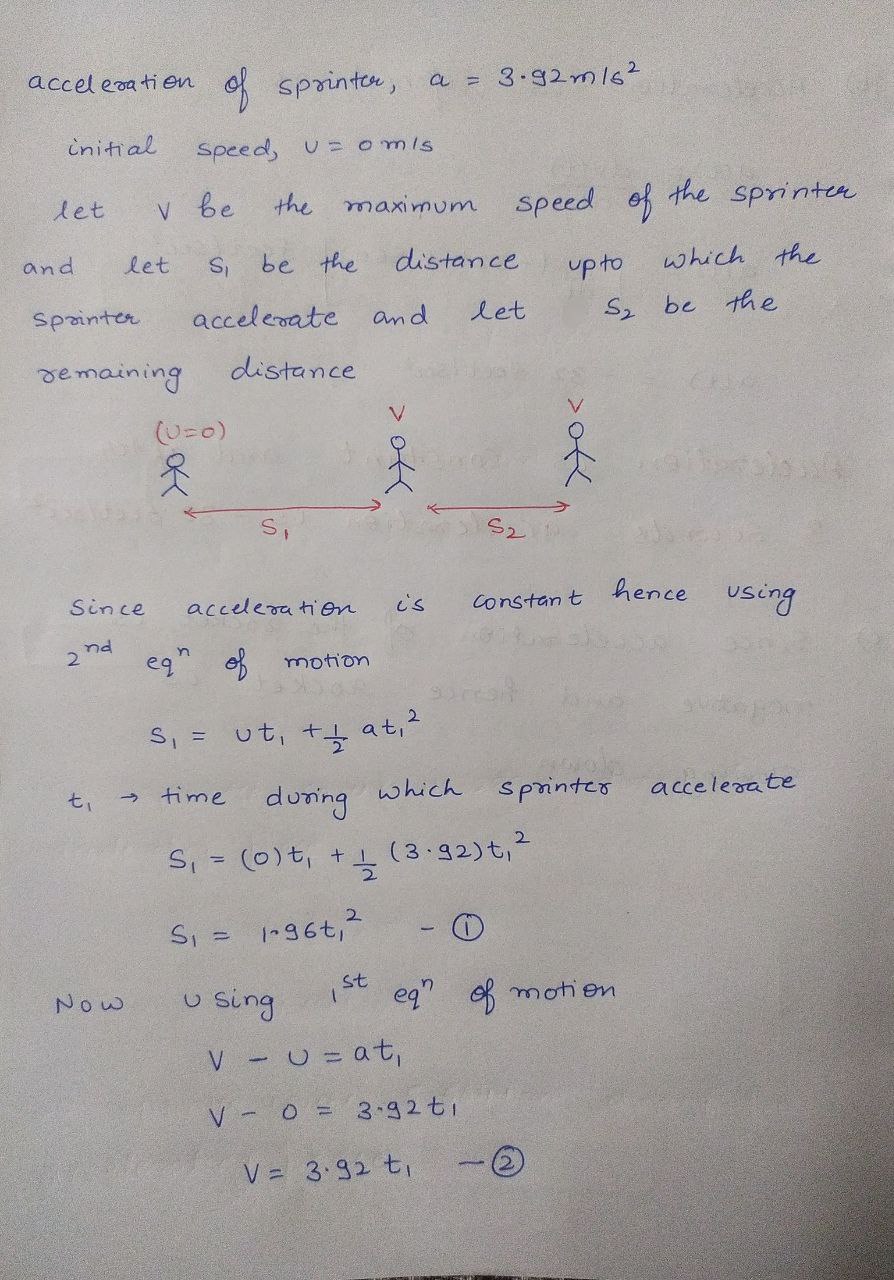 acceleration of sprinter, a = 3.92 m/s²
initial speed, u = 0 m/s
let v be the maximum speed of the sprinter
and let S₁ be the distance upto which the
sprinter accelerate and let S₂ be the
remaining distance
(u=0) v v
S₁ S₂
Since acceleration is constant hence using
2nd eqⁿ of motion
S₁ = ut₁ + 1/2 at₁²
t₁ → time during which sprinter accelerate
S₁ = (0)t₁ + 1/2 (3.92)t₁²
S₁ = 1.96t₁² - ①
Now using 1st eqⁿ of motion
v - u = at₁
v - 0 = 3.92t₁
v = 3.92 t₁ - ②